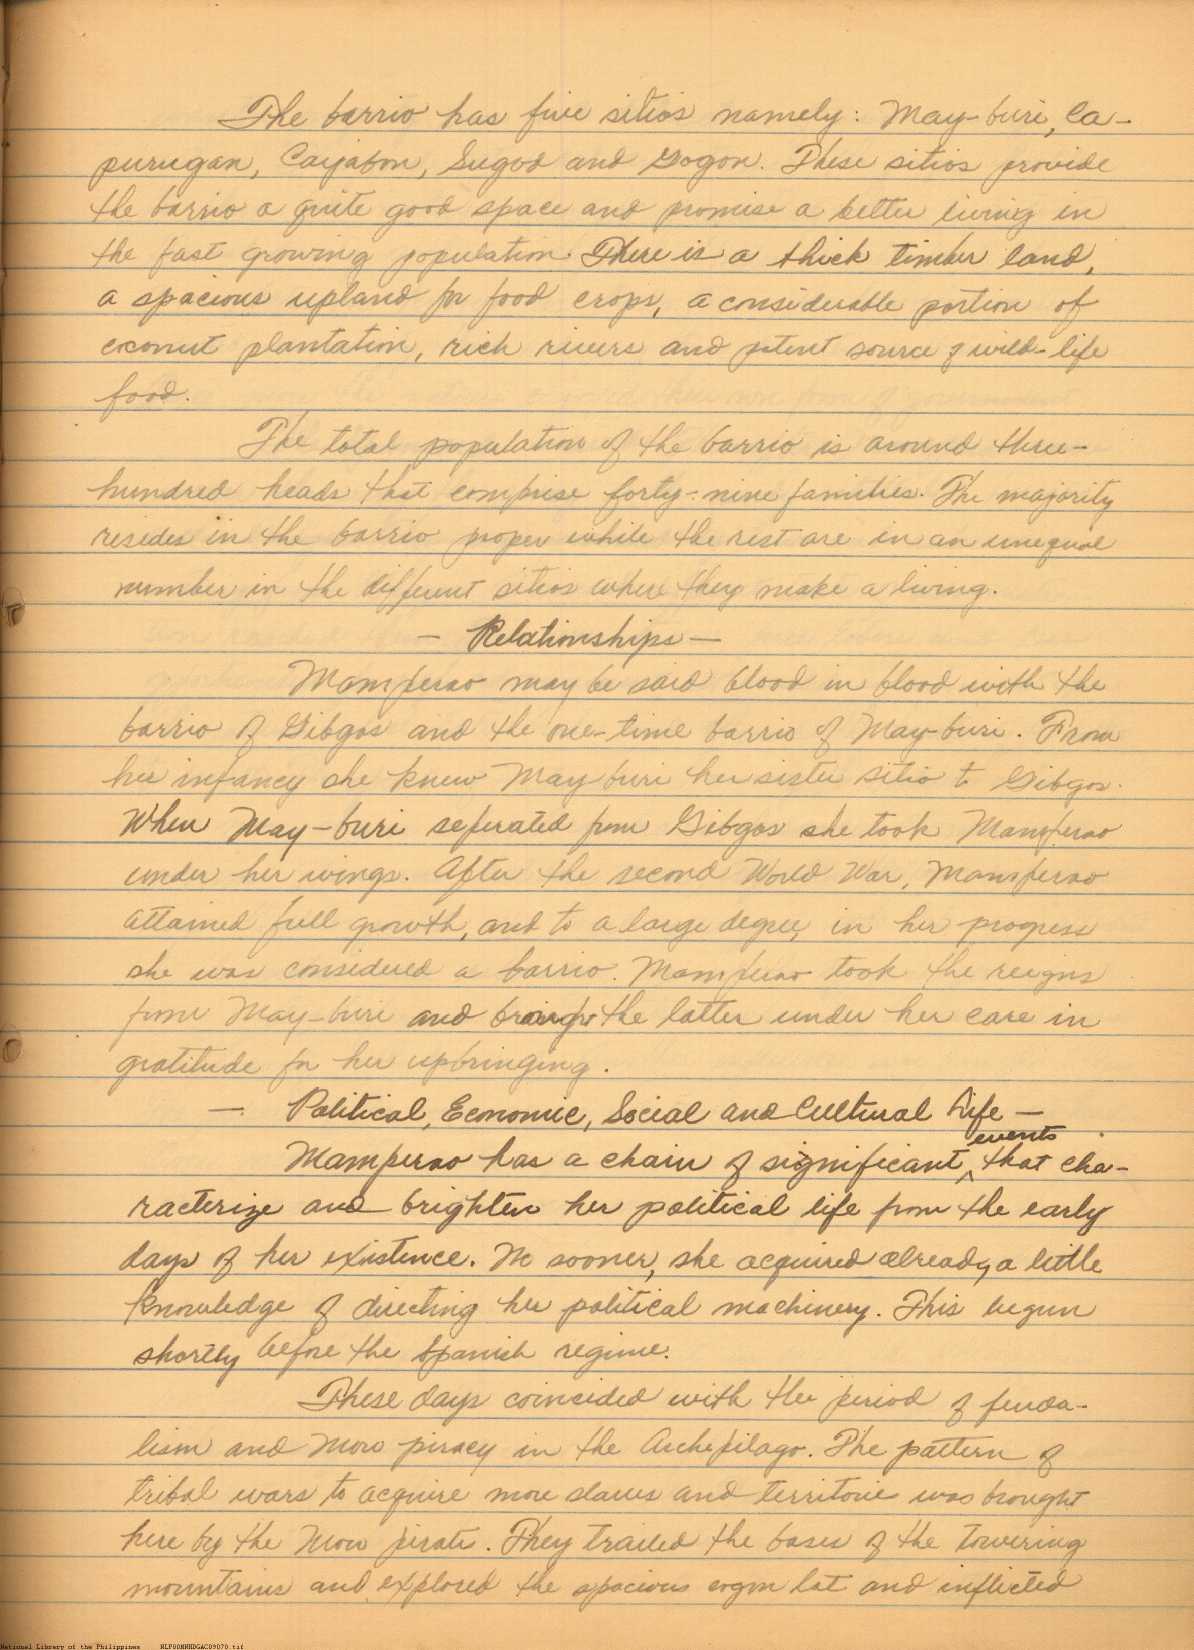 The barrio has five sitios namely: May-buri, Ca-
purugan, Cayabon, Sugod and Gogon. These sitios provide
the barrio a quite good space and promise a better living in
the fast growing population. There is a thick timber land,
a spacious upland for food crops, a considerable portion of
coconut plantation, rich rivers and potent source of wild-life
food.
The total population of the barrio is around three-
hundred heads that comprise forty-nine families. The majority
resides in the barrio proper while the rest are in an unequal
number in the different sitios where they make a living.
— Relationships —
Mamperao may be said blood in blood with the
barrio of Gibgos and the one-time barrio of May-buri. From
her infancy she knew May buri her sister sitio to Gibgos.
When May-buri seperated from Gibgos she took Mamperao
under her wings. After the second World War, Mamperao
attained full growth, and to a large degree, in her progress
she was considered a barrio. Mamperao took the reigns
from May-buri and brought the latter under her care in
gratitude for her upbringing.
— Political, Economic, Social and Cultural Life —
events
Mamperao has a chain of significant ^ that cha-
racterize and brighten her political life from the early
days of her existence. No sooner, she acquired already, a little
knowledge of directing her political machinery. This begun
shortly before the Spanish regime.
These days coincided with the period of feuda-
lism and Moro piracy in the Archepilago. The pattern of
tribal wars to acquire more slaves and territorie was brought
here by the Moro pirates. They trailed the bases of the towering
mountains and explored the spacious lat and inflicted
National Library of the Philippines NLP00NHHDGAC09070.tif